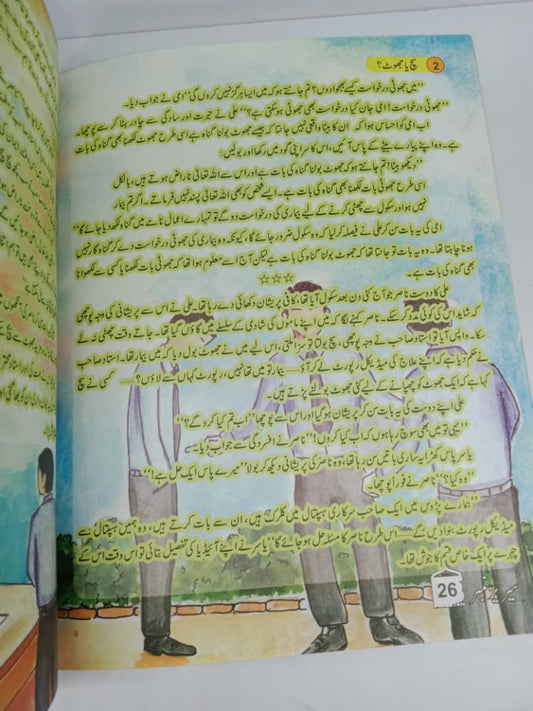 سچ یا جھوٹ؟ 2
”میں جھوٹی درخواست کیسے بھجوا دوں؟ تم جانتے ہو کہ میں ایسا ہرگز نہیں کروں گی“ امی نے جواب دیا۔
”جھوٹی درخواست! امی جان کیا درخواست بھی جھوٹی ہوسکتی ہے؟“ علی نے حیرت اور سادگی سے چادر ہٹا کر پوچھا۔
اب امی کو احساس ہوا کہ ان کا بیٹا واقعی نہیں جانتا کہ جیسے جھوٹ بولنا گناہ ہے اسی طرح جھوٹ لکھنا بھی گناہ کی بات
ہے۔ وہ اپنے پیارے بیٹے کے پاس آئیں، اس کا سر اپنی گود میں رکھا اور بولیں:
”دیکھو بیٹا! تم جانتے ہو کہ جھوٹ بولنا گناہ کی بات ہے اور اس سے اللہ تعالیٰ ناراض ہوتے ہیں، بالکل
اسی طرح جھوٹی بات لکھنا بھی گناہ کی بات ہے۔ ایسے شخص کو بھی اللہ تعالیٰ پسند نہیں فرماتے۔ اگر تم بیمار
نہیں ہو اور سکول سے چھٹی کرنے کے لیے بیماری کی درخواست دو گے تو تمہارے اعمال نامے میں گناہ لکھ دیا جائے گا“
امی کی یہ بات سن کر علی نے فیصلہ کر لیا کہ وہ سکول ضرور جائے گا، کیونکہ وہ بیماری کی جھوٹی درخواست دے کر گناہ گار نہیں
ہونا چاہتا تھا۔ وہ یہ بات تو جانتا تھا کہ جھوٹ بولنا گناہ کی بات ہے لیکن آج اسے معلوم ہوا تھا کہ جھوٹی بات لکھنا یا کسی سے لکھوانا
بھی گناہ کی بات ہے۔
☆☆☆
علی کا دوست ناصر جو آج کئی دن بعد سکول آیا تھا، کافی پریشان دکھائی دے رہا تھا۔ علی نے اس سے پریشانی کی وجہ پوچھی
کہ شاید اس کی کوئی مدد کر سکے۔ ناصر کہنے لگا کہ میں اپنے ماموں کی شادی کے سلسلے میں گاؤں گیا تھا۔ جاتے وقت چھٹی نہ لے
سکا۔ واپس آیا تو استاد صاحب نے وجہ پوچھی، سچ بولتا تو ۔۔۔ اس لیے میں نے جھوٹ بول دیا کہ میں بیمار تھا۔ استاد صاحب
نے حکم دیا ہے کہ اپنے علاج کی میڈیکل رپورٹ لے کر آؤ۔۔۔۔ بیمار تو میں تھا نہیں، رپورٹ کہاں سے لاؤں؟۔۔۔۔ کسی نے سچ
کہا ہے کہ ایک جھوٹ کو چھپانے کے لیے کئی جھوٹ بولنے پڑتے ہیں۔
علی اپنے دوست کی یہ بات سن کر پریشان ہو گیا اور اس سے پوچھا ”اب تم کیا کرو گے؟“
”یہی تو میں بھی سوچ رہا ہوں کہ اب کیا کروں؟“ ناصر نے افسردگی سے جواب دیا۔
یاسر پاس کھڑا یہ ساری باتیں سن رہا تھا، وہ ناصر کی پریشانی دیکھ کر بولا ”میرے پاس ایک حل ہے!“
”وہ کیا؟“ ناصر نے فوراً پوچھا۔
”ہمارے پڑوس میں ایک صاحب سرکاری ہسپتال میں کلرک ہیں، ان سے بات کرتے ہیں، وہ ہمیں ہسپتال سے
میڈیکل رپورٹ بنوا دیں گے۔۔۔۔ اس طرح ناصر کا مسئلہ حل ہو جائے گا“ یاسر نے اپنے آئیڈیا کی تفصیل بتائی تو اس وقت اس کے
چہرے پر ایک خاص قسم کا جوش تھا۔
سیریز نمبر 26